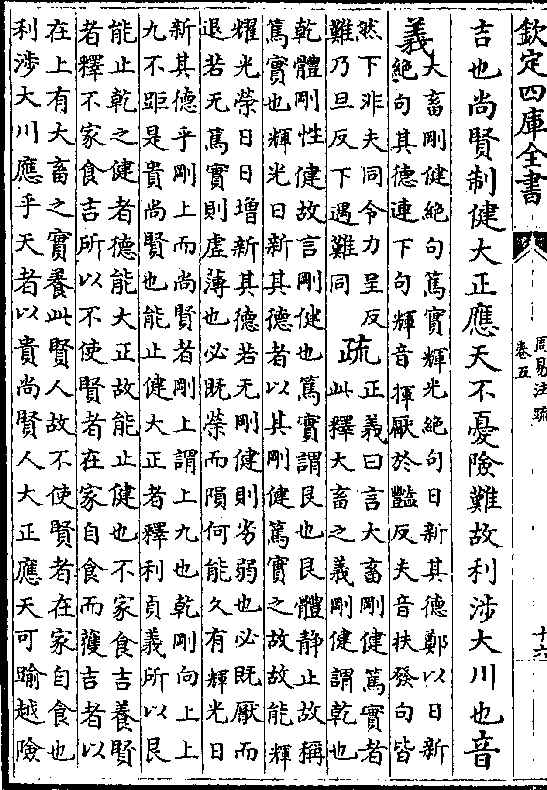 欽定四庫全書
周易注疏
卷五
十六
吉也尚賢制健大正應天不憂險難故利涉大川也音
義大畜剛健絶句篤實輝光絶句日新其德鄭以日新
絶句其德連下句輝音揮厭於豔反夫音扶發句皆
然下非夫同令力呈反
難乃旦反下遇難同
疏正義曰言大畜剛健篤實者
此釋大畜之義剛健謂乾也
乾體剛性健故言剛健也篤實謂艮也艮體静止故稱
篤實也輝光日新其德者以其剛健篤實之故故能輝
耀光榮日日増新其德若无剛健則劣弱也必既厭而
退若无篤實則虚薄也必既榮而隕何能久有輝光日
新其德乎剛上而尚賢者剛上謂上九也乾剛向上上
九不距是貴尚賢也能止健大正者釋利貞義所以艮
能止乾之健者德能大正故能止健也不家食吉養賢
者釋不家食吉所以不使賢者在家自食而獲吉者以
在上有大畜之實養此賢人故不使賢者在家自食也
利涉大川應乎天者以貴尚賢人大正應天可踰越險